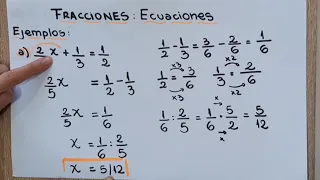 FRACCIONES: Ecuaciones
Ejemplos:
a) 2 x + 1/3 = 1/2
2/5 x = 1/2 - 1/3
2/5 x = 1/6
x = 1/6 : 2/5
x = 5/12
1/2 - 1/3 = 3/6 - 2/6 = 1/6
x3 x2
1/2 = 3/6 1/3 = 2/6
x3 x2
x
1/6 : 2/5 = 1/6 · 5/2 = 5/12
x